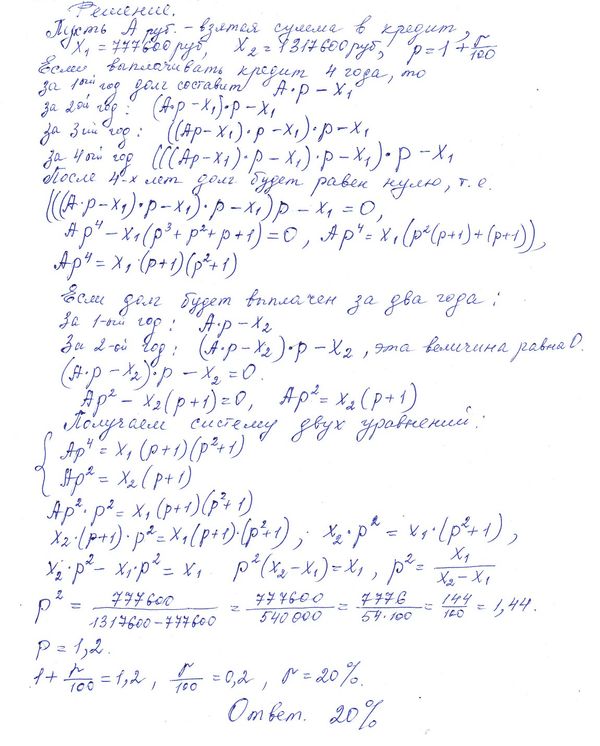 Решение.
Пусть A руб. – взятая сумма в кредит,
X₁ = 777600 руб, X₂ = 1317600 руб, p = 1 + r/100
Если выплачивать кредит 4 года, то
за 1ый год долг составит A·p – X₁
за 2ой год: (A·p – X₁)·p – X₁
за 3ий год: ((Ap – X₁)·p – X₁)·p – X₁
за 4ый год (((Ap – X₁)·p – X₁)·p – X₁)·p – X₁
После 4-х лет долг будет равен нулю, т.е.
(((A·p – X₁)·p – X₁)·p – X₁)p – X₁ = 0,
Ap⁴ – X₁(p³ + p² + p + 1) = 0, Ap⁴ = X₁(p²(p+1) + (p+1)),
Ap⁴ = X₁·(p+1)(p²+1)
Если долг будет выплачен за два года:
За 1-ый год: A·p – X₂
За 2-ой год: (A·p – X₂)·p – X₂, эта величина равна 0.
(A·p – X₂)·p – X₂ = 0.
Ap² – X₂(p+1) = 0, Ap² = X₂(p+1)
Получаем систему двух уравнений:
{ Ap⁴ = X₁(p+1)(p²+1)
Ap² = X₂(p+1)
Ap²·p² = X₁(p+1)(p²+1)
X₂·(p+1)·p² = X₁(p+1)·(p²+1); X₂·p² = X₁·(p²+1),
X₂·p² – X₁·p² = X₁ p²(X₂ – X₁) = X₁, p² = X₁/(X₂ – X₁)
p² = 777600/(1317600 – 777600) = 777600/540000 = 7776/(54·100) = 144/100 = 1,44.
p = 1,2.
1 + r/100 = 1,2, r/100 = 0,2, r = 20%.
Ответ. 20%